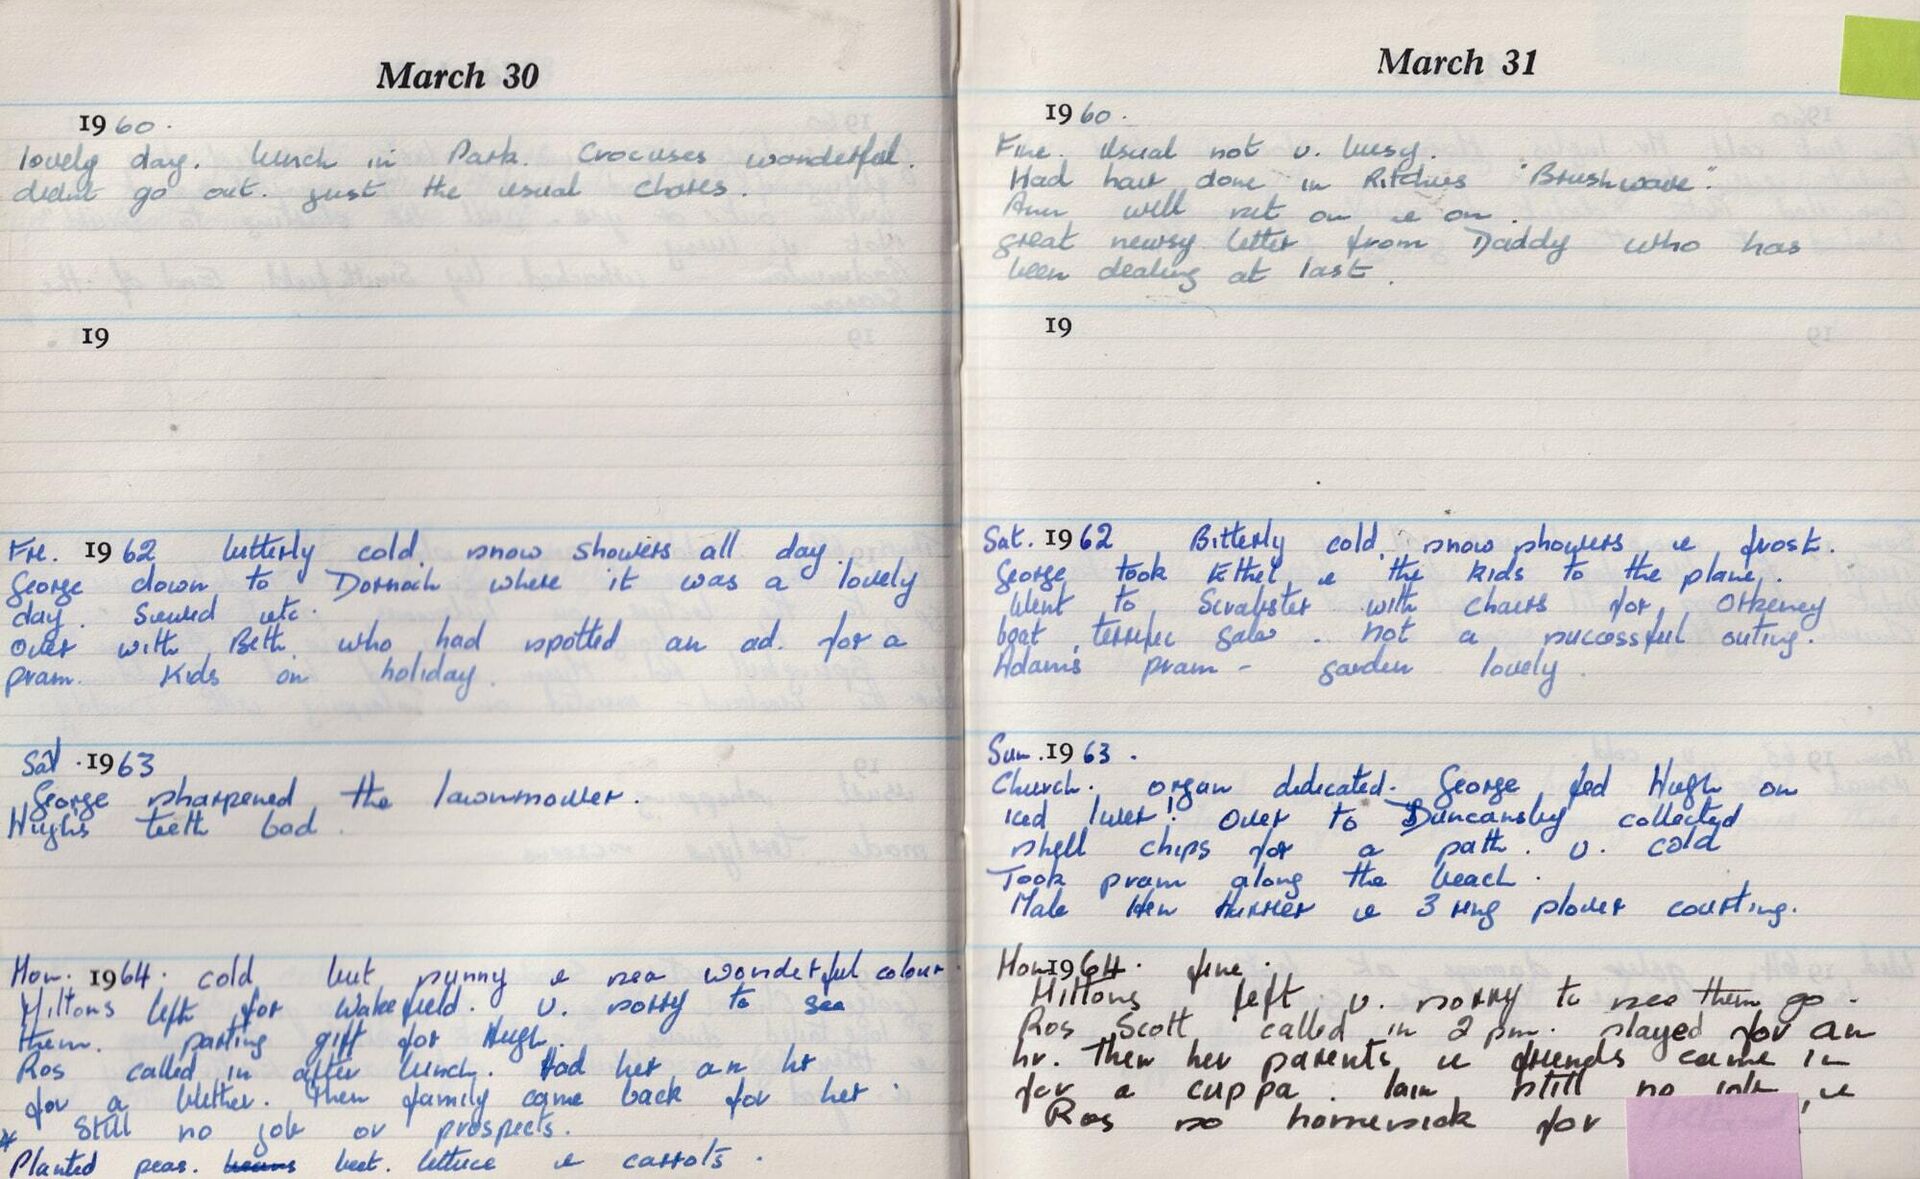 March 30
1960.
lovely day. lunch in Park. Crocuses wonderful.
didnt go out. just the usual chores.
19
Fri. 1962 bitterly cold, snow showers all day.
George down to Dornoch where it was a lovely
day. Sewed etc.
Over with Beth who had spotted an ad. for a
pram. Kids on holiday.
Sat. 1963
George sharpened the lawnmower.
Hughs teeth bad.
Mon. 1964. cold but sunny & sea wonderful colour.
Miltons left for Wakefield. v. sorry to see
them. parting gift for Hugh.
Ros called in after lunch. Had her an hr
for a blether. Then family came back for her.
* Still no job or prospects.
Planted peas. beans beet. lettuce & carrots.
March 31
1960.
Fine. Usual not v. busy.
Had hair done in Ritchies "Brushwave".
Ann will nit on & on.
great newsy letter from Daddy who has
been dealing at last.
19
Sat. 1962 Bitterly cold, snow showers & frost.
George took Ethel & the kids to the plane.
Went to Scrabster with chairs for Orkney
boat, terrific gale .. not a successful outing.
Adam's pram - garden lovely.
Sun. 1963.
Church. organ dedicated. George fed Hugh on
iced liver! Over to Duncansby collected
shell chips for a path. v. cold
Took pram along the beach.
Male Hen Harrier & 3 ring plover courting.
Mon 1964. fine.
Miltons left v. sorry to see them go.
Ros Scott called in 2 pm. played for an
hr. then her parents & friends came in
for a cuppa. Iain still no job &
Ros so homesick for